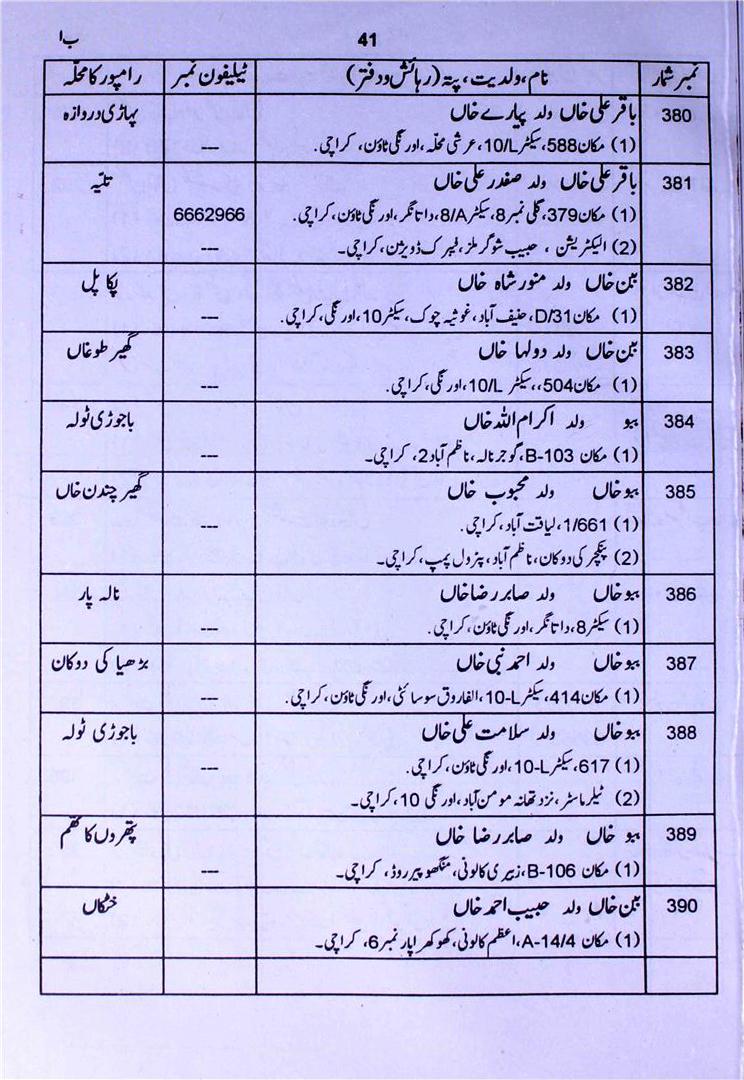 ب ا
41
نمبر شمار نام، ولدیت، پتہ (رہائش و دفتر) ٹیلیفون نمبر رامپور کا محلّہ
380 باقر علی خاں ولد پیارے خاں پہاڑی دروازہ
(1) مکان 588، سیکٹر 10/L، عرشی محلّہ، اورنگی ٹاؤن، کراچی۔ ---
381 باقر علی خاں ولد صفدر علی خاں تلیّہ
(1) مکان 379، گلی نمبر 8، سیکٹر 8/A، داتا نگر، اورنگی ٹاؤن، کراچی۔ 6662966
(2) الیکٹریشن ، حبیب شوگر ملز، فیبرک ڈویژن، کراچی۔ ---
382 ببّن خاں ولد منور شاہ خاں پکا پل
(1) مکان D/31، حنیف آباد، غوثیہ چوک، سیکٹر 10، اورنگی، کراچی۔ ---
383 ببّن خاں ولد دولہا خاں گھیر طوغاں
(1) مکان 504،، سیکٹر 10/L، اورنگی، کراچی۔ ---
384 ببو ولد اکرام اللہ خاں باجوڑی ٹولہ
(1) مکان B-103، گوجر نالہ، ناظم آباد 2، کراچی۔ ---
385 ببو خاں ولد محبوب خاں گھیر چندن خاں
(1) 1/661، لیاقت آباد، کراچی۔ ---
(2) پنکچر کی دوکان، ناظم آباد، پٹرول پمپ، کراچی۔
386 ببو خاں ولد صابر رضا خاں نالہ پار
(1) سیکٹر 8، داتا نگر، اورنگی ٹاؤن، کراچی۔ ---
387 ببو خاں ولد احمد نبی خاں بڑھیا کی دوکان
(1) مکان 414، سیکٹر 10-L، الفاروق سوسائٹی، اورنگی ٹاؤن، کراچی۔ ---
388 ببو خاں ولد سلامت علی خاں باجوڑی ٹولہ
(1) 617، سیکٹر 10-L، اورنگی ٹاؤن، کراچی۔ ---
(2) ٹیلر ماسٹر، نزد تھانہ مومن آباد، اورنگی 10، کراچی۔
389 ببو خاں ولد صابر رضا خاں پتھروں کا کھم
(1) مکان B-106، زبیری کالونی، منگھو پیر روڈ، کراچی۔ ---
390 ببّن خاں ولد حبیب احمد خاں خٹکاں
(1) مکان A-14/4، اعظم کالونی، کھوکھرا پار نمبر 6، کراچی۔